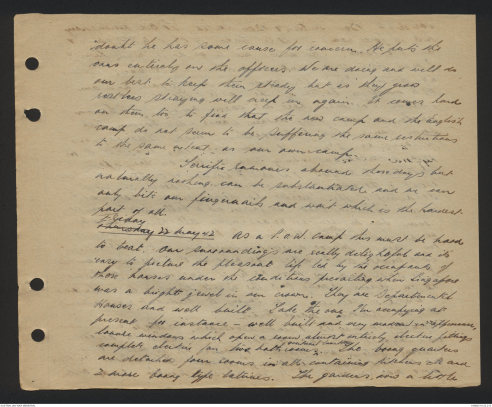 doubt he has some cause for concern. He puts the
onus entirely on the officers. We are doing and will do
our best to keep them steady but as they grow
restless straying will creep in again. It comes hard
on them too to find that the new camp and the English
camp do not seem to be suffering the same restrictions
to the same extent as our own camp.
Terrific rumours abound these days but
naturally nothing can be substantiated and we can
only bite our fingernails and wait which is the hardest
part of all.
Friday
Thursday 22 May 42 As a P.O.W. camp this must be hard
to beat. Our surroundings are really delightful and its
easy to picture the pleasant life led by the occupants of
these houses under the conditions prevailing when Singapore
was a bright jewel in our crown. They are Departmental
houses and well built. Take the one I'm occupying at
present for instance - well built and very modern in appearance,
louvre windows which open a room almost entirely, electric fittings
complete, electric fan, two bathrooms. The boong quarters
are detached four rooms in all containing kitchen etc and
2 more boong type latrines. The gardens, now a little